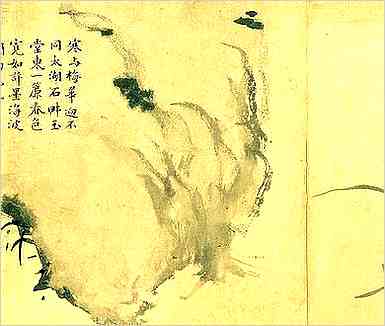 寒与梅華迥不
同太湖石畔玉
堂東一簾春色
寛如許墨海波